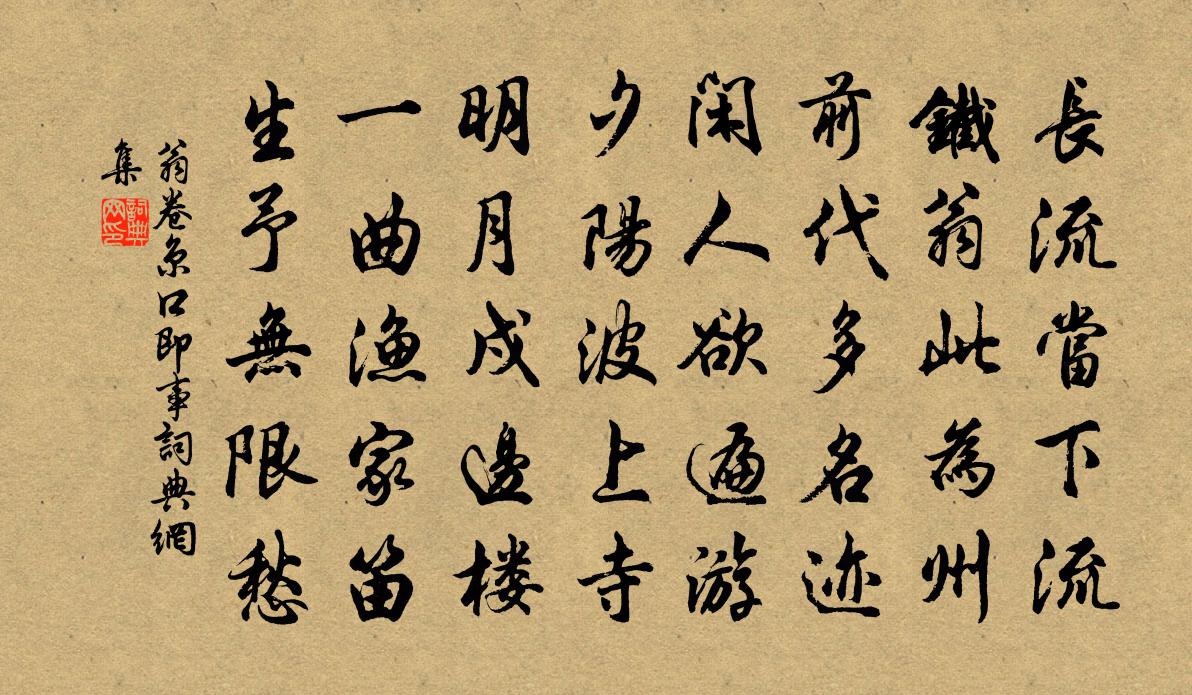 長流當下流
鐵翁此為州
前代多名迹
閑人欲遍游
夕陽波上寺
明月戍邊楼
一曲漁家笛
生予無限愁
翁卷京口即事詞典網
集
詞典網印